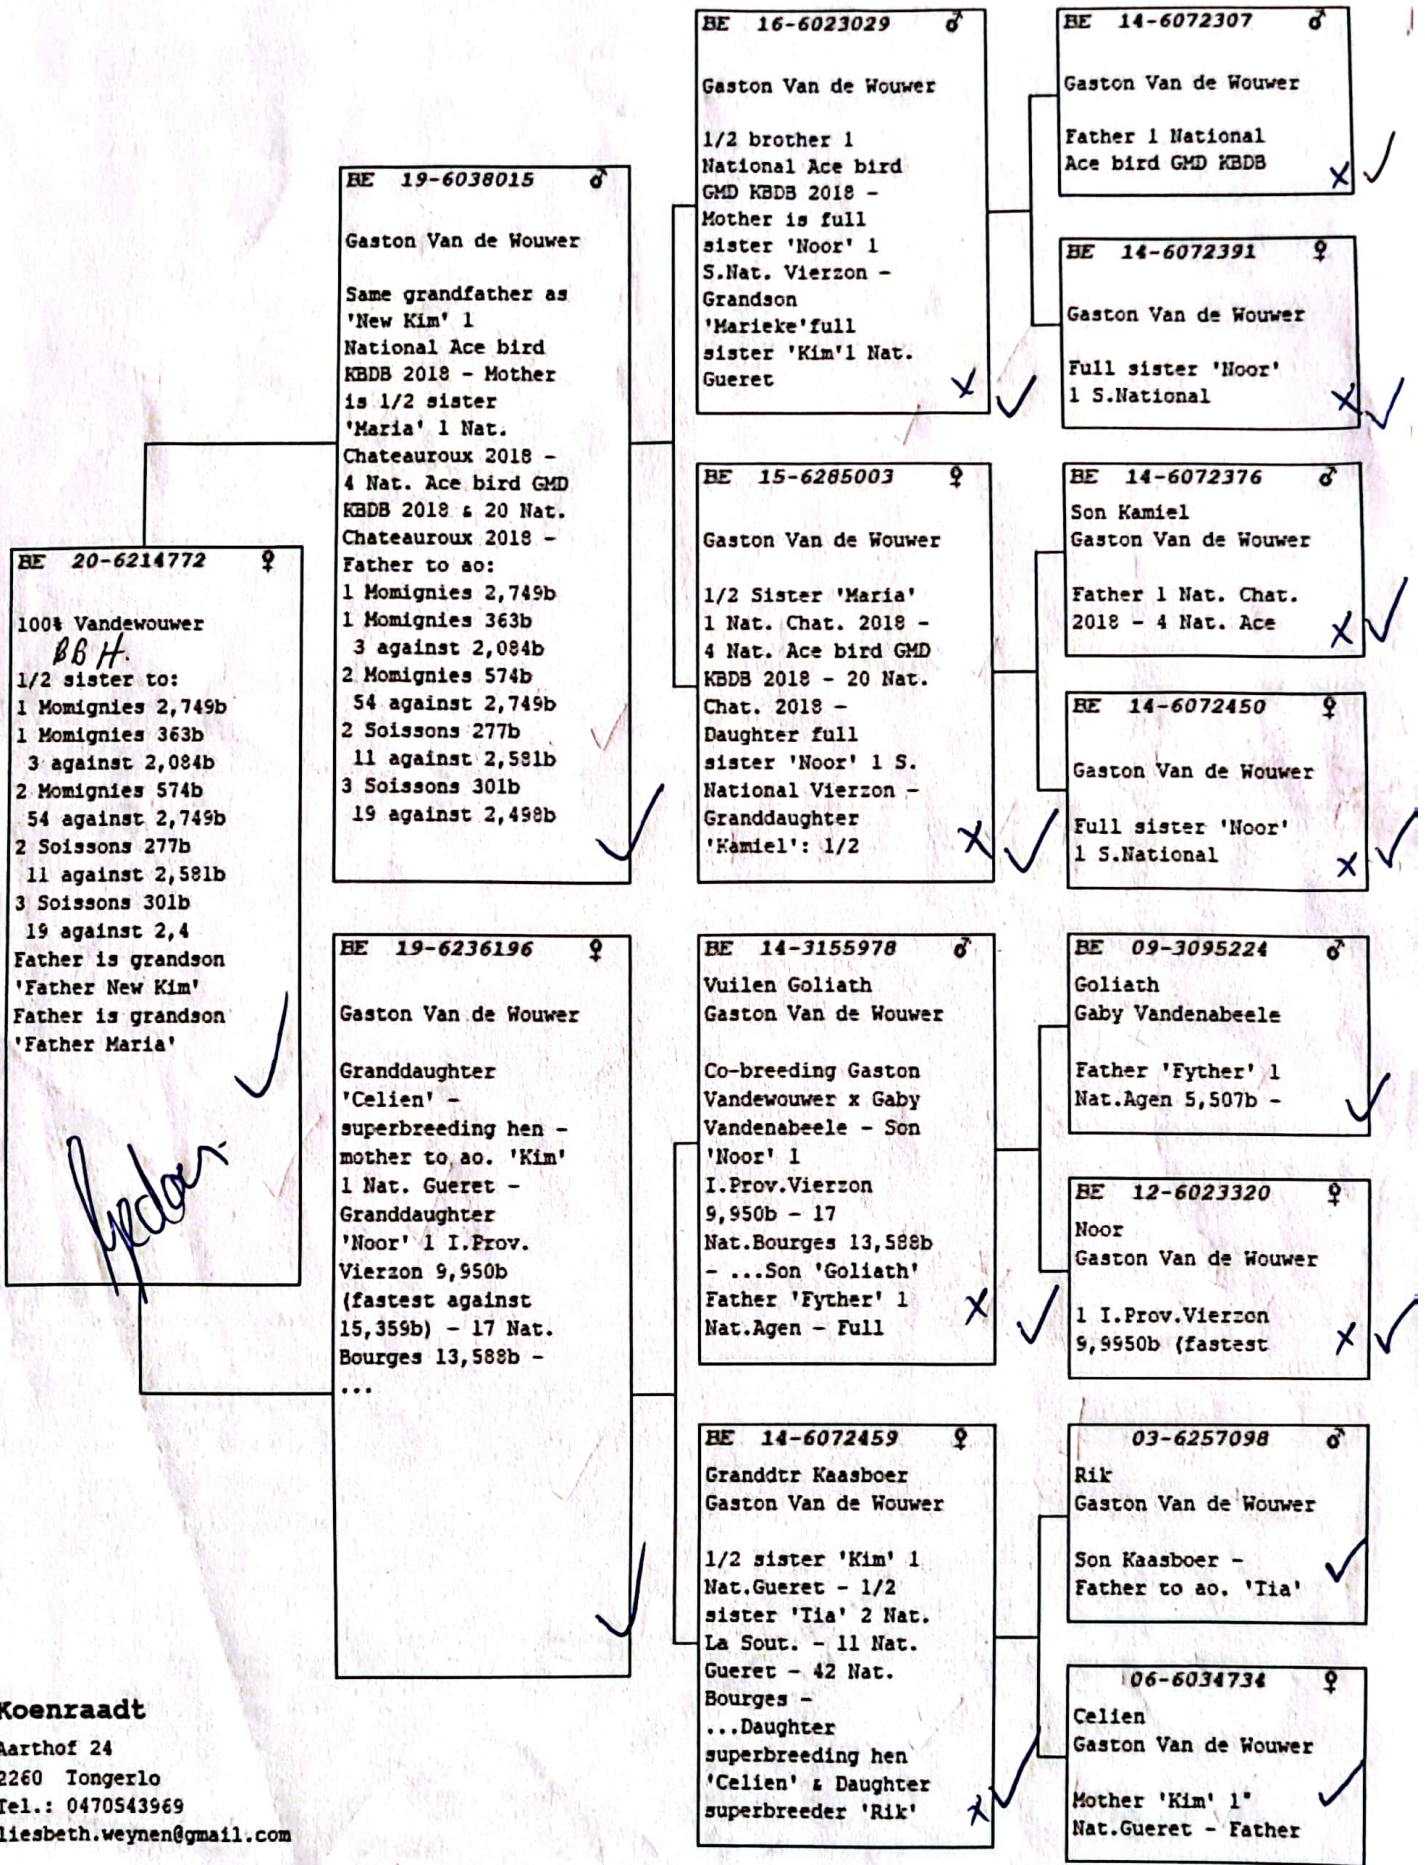 BE 20-6214772 ♀
100% Vandewouwer
BBH.
1/2 sister to:
1 Momignies 2,749b
1 Momignies 363b
3 against 2,084b
2 Momignies 574b
54 against 2,749b
2 Soissons 277b
11 against 2,581b
3 Soissons 301b
19 against 2,4
Father is grandson
'Father New Kim'
Father is grandson
'Father Maria'
BE 19-6038015 ♂
Gaston Van de Wouwer
Same grandfather as
'New Kim' 1
National Ace bird
KBDB 2018 - Mother
is 1/2 sister
'Maria' 1 Nat.
Chateauroux 2018 -
4 Nat. Ace bird GMD
KBDB 2018 & 20 Nat.
Chateauroux 2018 -
Father to ao:
1 Momignies 2,749b
1 Momignies 363b
3 against 2,084b
2 Momignies 574b
54 against 2,749b
2 Soissons 277b
11 against 2,581b
3 Soissons 301b
19 against 2,498b
BE 19-6236196 ♀
Gaston Van de Wouwer
Granddaughter
'Celien' -
superbreeding hen -
mother to ao. 'Kim'
1 Nat. Gueret -
Granddaughter
'Noor' 1 I.Prov.
Vierzon 9,950b
(fastest against
15,359b) - 17 Nat.
Bourges 13,588b -
...
BE 16-6023029 ♂
Gaston Van de Wouwer
1/2 brother 1
National Ace bird
GMD KBDB 2018 -
Mother is full
sister 'Noor' 1
S.Nat. Vierzon -
Grandson
'Marieke'full
sister 'Kim'1 Nat.
Gueret
BE 15-6285003 ♀
Gaston Van de Wouwer
1/2 Sister 'Maria'
1 Nat. Chat. 2018 -
4 Nat. Ace bird GMD
KBDB 2018 - 20 Nat.
Chat. 2018 -
Daughter full
sister 'Noor' 1 S.
National Vierzon -
Granddaughter
'Kamiel': 1/2
BE 14-3155978 ♂
Vuilen Goliath
Gaston Van de Wouwer
Co-breeding Gaston
Vandewouwer x Gaby
Vandenabeele - Son
'Noor' 1
I.Prov.Vierzon
9,950b - 17
Nat.Bourges 13,588b
- ...Son 'Goliath'
Father 'Fyther' 1
Nat.Agen - Full
BE 14-6072459 ♀
Granddtr Kaasboer
Gaston Van de Wouwer
1/2 sister 'Kim' 1
Nat.Gueret - 1/2
sister 'Tia' 2 Nat.
La Sout. - 11 Nat.
Gueret - 42 Nat.
Bourges -
...Daughter
superbreeding hen
'Celien' & Daughter
superbreeder 'Rik'
BE 14-6072307 ♂
Gaston Van de Wouwer
Father 1 National
Ace bird GMD KBDB
BE 14-6072391 ♀
Gaston Van de Wouwer
Full sister 'Noor'
1 S.National
BE 14-6072376 ♂
Son Kamiel
Gaston Van de Wouwer
Father 1 Nat. Chat.
2018 - 4 Nat. Ace
BE 14-6072450 ♀
Gaston Van de Wouwer
Full sister 'Noor'
1 S.National
BE 09-3095224 ♂
Goliath
Gaby Vandenabeele
Father 'Fyther' 1
Nat.Agen 5,507b -
BE 12-6023320 ♀
Noor
Gaston Van de Wouwer
1 I.Prov.Vierzon
9,9950b (fastest
03-6257098 ♂
Rik
Gaston Van de Wouwer
Son Kaasboer -
Father to ao. 'Tia'
06-6034734 ♀
Celien
Gaston Van de Wouwer
Mother 'Kim' 1°
Nat.Gueret - Father
Koenraadt
Aarthof 24
2260 Tongerlo
Tel.: 0470543969
liesbeth.weynen@gmail.com